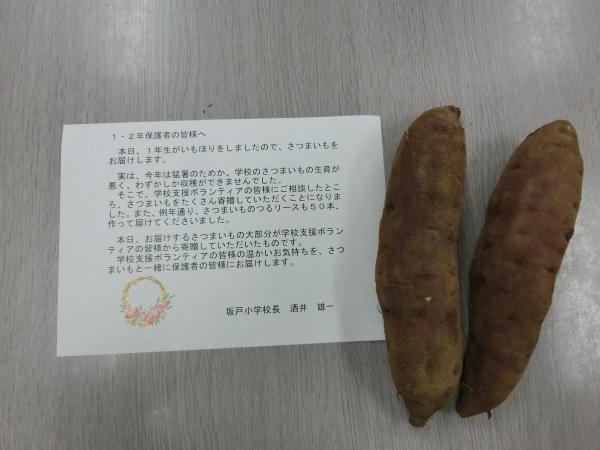 １・２年保護者の皆様へ
本日、１年生がいもほりをしましたので、さつまいもを
お届けします。
実は、今年は猛暑のためか、学校のさつまいもの生育が
悪く、わずかしか収穫ができませんでした。
そこで、学校支援ボランティアの皆様にご相談したとこ
ろ、さつまいもをたくさん寄贈していただくことになりま
した。また、例年通り、さつまいものつるリースも５０本、
作って届けてくださいました。
本日、お届けするさつまいもの大部分が学校支援ボラン
ティアの皆様から寄贈していただいたものです。
学校支援ボランティアの皆様の温かいお気持ちを、さつ
まいもと一緒に保護者の皆様にお届けします。
坂戸小学校長　酒井　雄一